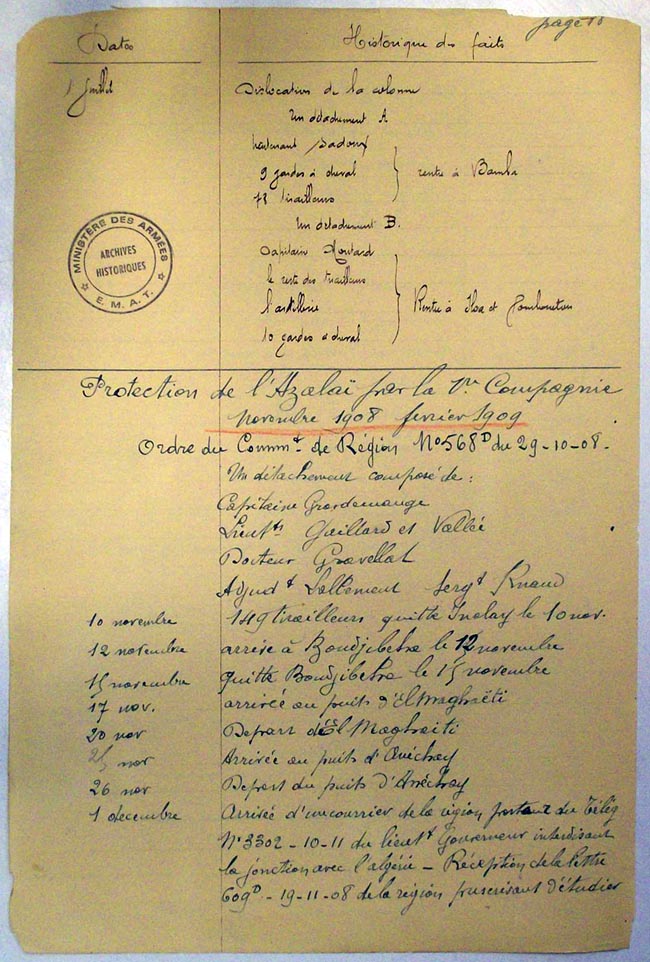 page 10
Dates Historique des faits
1 Juillet Dislocation de la colonne
Un détachement A
Lieutenant Sadoux
9 gardes à cheval rentre à Bamba
78 tirailleurs
Un détachement B.
Capitaine
le reste des tirailleurs
l'artillerie Rentre à et Tombouctou
10 gardes à cheval
MINISTÈRE DES ARMÉES
ARCHIVES
HISTORIQUES
E. M. A. T.
Protection de l'Azalaï par la Compagnie
novembre 1908 février 1909
Ordre du Commt de Région No 568D du 29-10-08-
Un détachement composé de :
Capitaine Grosdemange
Lieutts Gaillard et Vallée
Docteur Gravellat
Adjudt Lallement Sergt
10 novembre 149 tirailleurs quitte Inalay le 10 nov.
12 novembre arrive à Boudjibeha le 12 novembre
15 novembre quitte Boudjibeha le 15 novembre
17 nov. arrivée au puits d'El Maghaïti
20 nov Depart d'El Maghaiti
25 nov Arrivée au puits d'Anéchay
26 nov Depart du puits d'Anéchay
1 décembre Arrivée d'un courrier de la région portant du Télég
No 3302 - 10-11 du lieutt Gouverneur interdisant
la jonction avec l'algérie - Réception de la lettre
609D - 19-11-08 de la région prescrivant d'étudier